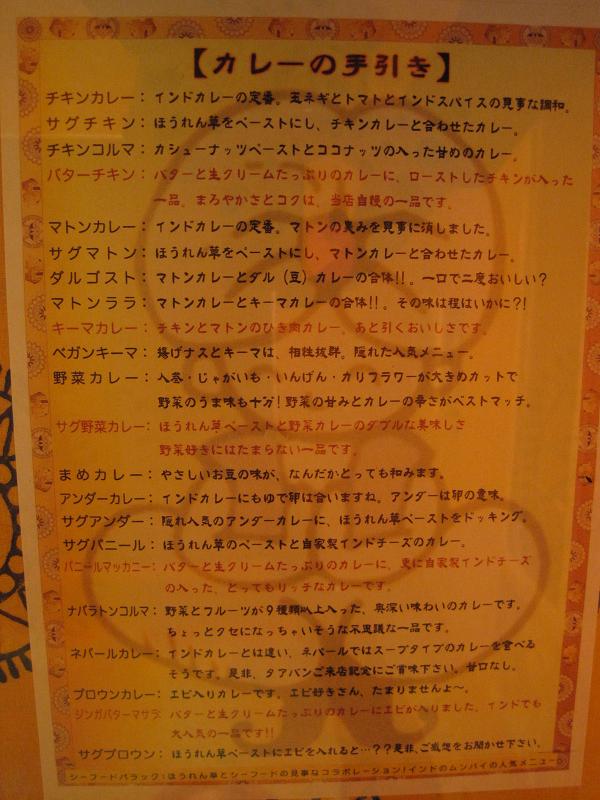 【カレーの手引き】
チキンカレー：インドカレーの定番。玉ネギとトマトとインドスパイスの見事な調和。
サグチキン：ほうれん草をペーストにし、チキンカレーと合わせたカレー。
チキンコルマ：カシューナッツペーストとココナッツの入った甘めのカレー。
バターチキン：バターと生クリームたっぷりのカレーに、ローストしたチキンが入った
一品。まろやかさとコクは、当店自慢の一品です。
マトンカレー：インドカレーの定番。マトンの臭みを見事に消しました。
サグマトン：ほうれん草をペーストにし、マトンカレーと合わせたカレー。
ダルゴスト：マトンカレーとダル（豆）カレーの合体!!。一口で二度おいしい？
マトンララ：マトンカレーとキーマカレーの合体!!。その味は程はいかに?!
キーマカレー：チキンとマトンのひき肉カレー。あと引くおいしさです。
ベガンキーマ：揚げナスとキーマは、相性抜群。隠れた人気メニュー。
野菜カレー：人参・じゃがいも・いんげん・カリフラワーが大きめカットで
野菜のうま味も十分!野菜の甘みとカレーの辛さがベストマッチ。
サグ野菜カレー：ほうれん草ペーストと野菜カレーのダブルな美味しさ
野菜好きにはたまらない一品です。
まめカレー：やさしいお豆の味が、なんだかとっても和みます。
アンダーカレー：インドカレーにもゆで卵は合いますね。アンダーは卵の意味。
サグアンダー：隠れ人気のアンダーカレーに、ほうれん草ペーストをドッキング。
サグパニール：ほうれん草のペーストと自家製インドチーズのカレー。
パニールマッカニー：バターと生クリームたっぷりのカレーに、更に自家製インドチーズ
の入った、とってもリッチなカレーです。
ナバラトンコルマ：野菜とフルーツが9種類以上入った、奥深い味わいのカレーです。
ちょっとクセになっちゃいそうな不思議な一品です。
ネパールカレー：インドカレーとは違い、ネパールではスープタイプのカレーを食べる
そうです。是非、タアバンご来店記念にご賞味下さい。甘口なし。
プロウンカレー：エビ入りカレーです。エビ好きさん、たまりませんよ～。
ジンガバターマサラ：バターと生クリームたっぷりのカレーにエビが入りました。インドでも
大人気の一品です!!
サグプロウン：ほうれん草ペーストにエビを入れると…？？是非、ご感想をお聞かせ下さい。
シーフードパラック：ほうれん草とシーフードの見事なコラボレーション!インドのムンバイの人気メニュー